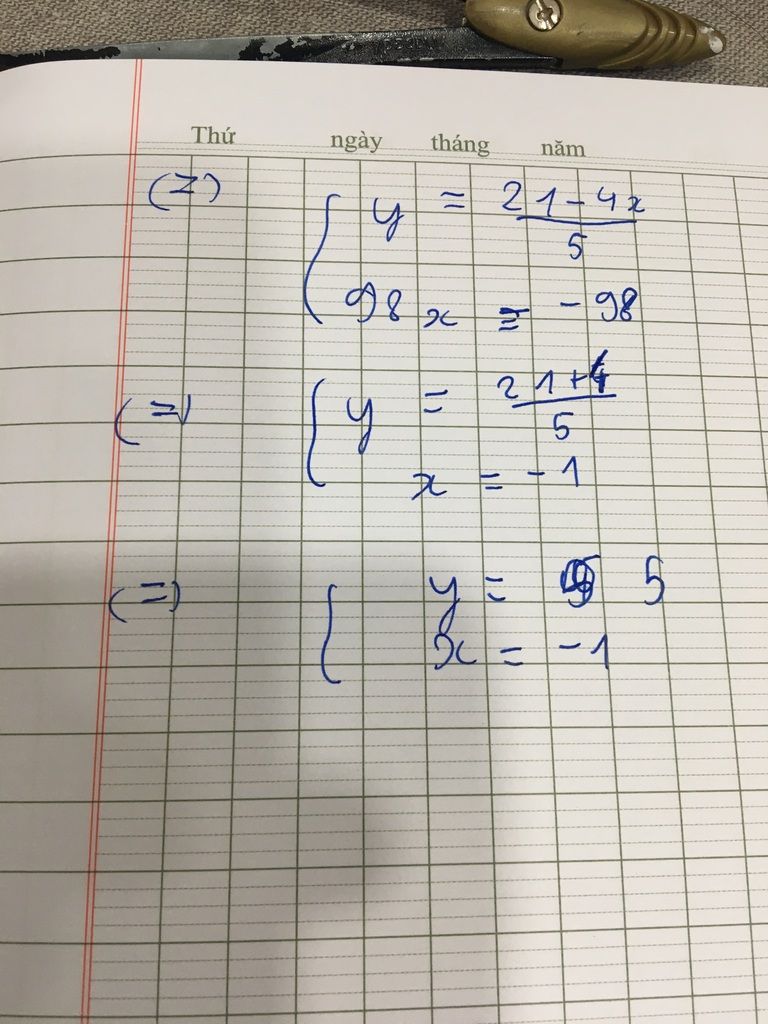 Thứ ngày tháng năm
(=) { y = 21 - 4x / 5
98x = - 98
(=) { y = 21 + 4 / 5
x = - 1
(=) { y = 5
x = - 1